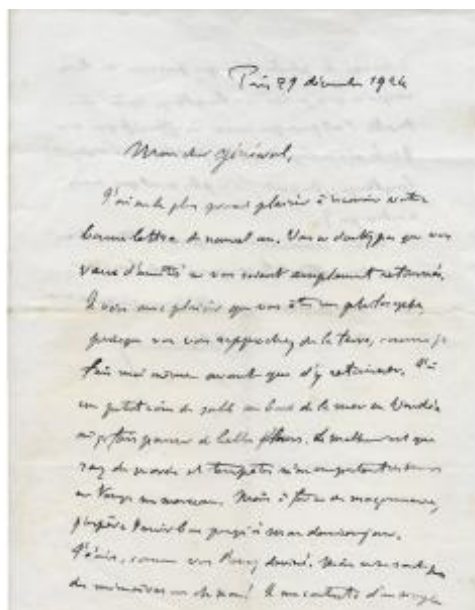 Paris 29 décembre 1924
Mon cher général,
J'ai eu le plus grand plaisir à recevoir votre
bonne lettre de nouvel an. Vous ne doutez pas que vos
vœux d'amitié ne vous soient amplement retournés.
Je vois avec plaisir que vous êtes un philosophe
puisque vous vous rapprochez de la terre, comme je
fais moi même avant que d'y retourner. J'ai
un petit coin de sable au bord de la mer en Vendée
où je fais pousser de belles fleurs. Le malheur est que
et tempêtes
en morceaux. Mais à force de maçonnerie,
j'espère bon jusqu'à mon dernier jour.
J'écris, comme vous l'avez deviné. Mais ce ne sont pas
des mémoires Je me contente d'un